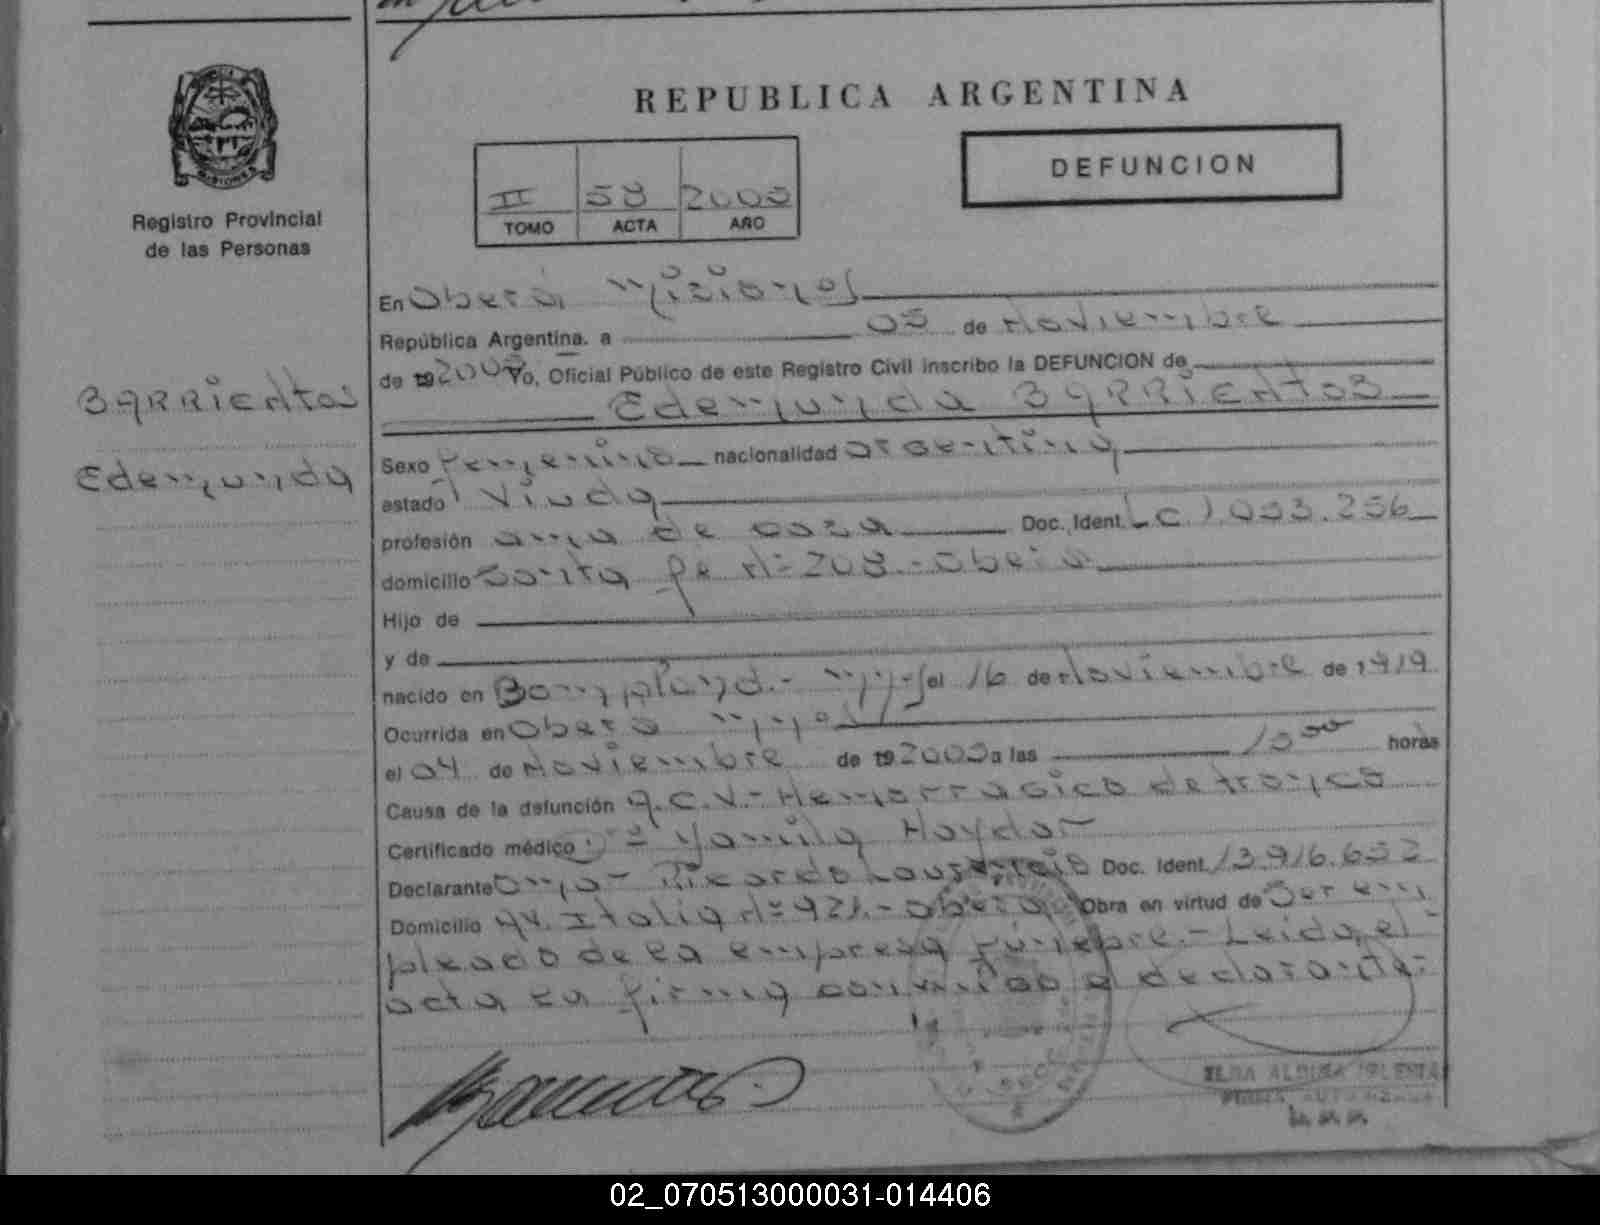 REPUBLICA ARGENTINA
DEFUNCION
II 58
TOMO ACTA AÑO
MISIONES
Registro Provincial
de las Personas
Barrientos
Edemunda
En Oberá Misiones
República Argentina. a 05 de Noviembre
de 19 Yo, Oficial Público de este Registro Civil inscribo la DEFUNCION de
Edemunda Barrientos
Sexo Femenino nacionalidad argentina
estado Viuda
profesión ama de casa Doc. Ident. L C
domicilio Santa fe Nº 208.- Oberá
Hijo de
y de
nacido en Bompland.- el 16 de Noviembre de 1919
Ocurrida en Oberá
el 04 de Noviembre de 19 a las horas
Causa de la defunción A.C.V.- Hemorragico de tronco
Certificado médico Yamila Haydar
Declarante Omar Ricardo Doc. Ident. 13.916.652
Domicilio Av. Italia Nº 921.- Oberá Obra en virtud de Ser em
pleado de la empresa fúnebre.- Leida el
acta la firma conmigo el declarante.-
02_070513000031-014406